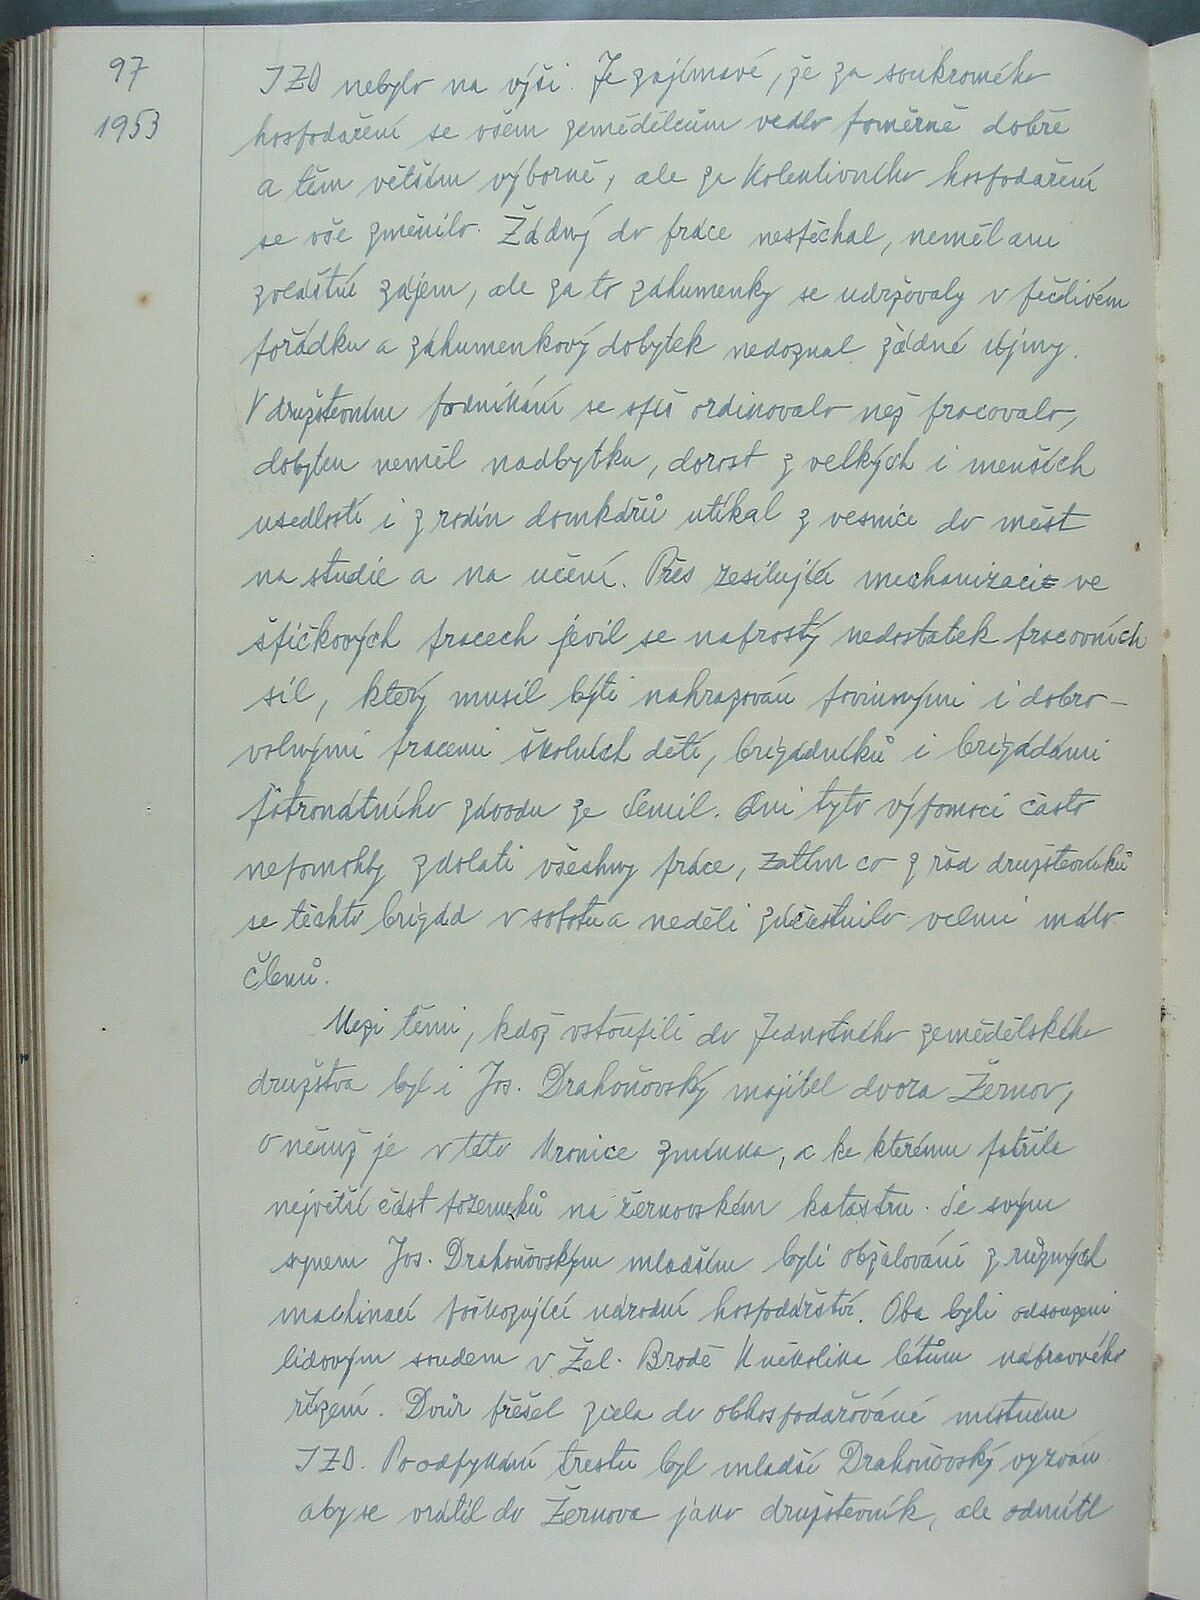 97
1953
JZD nebylo na výši. Je zajímavé, že za soukromého
hospodaření se všem zemědělcům vedlo poměrně dobře
a těm větším výborně, ale za kolektivního hospodaření
se vše změnilo. Žádný do práce nespěchal, neměl ani
zvláštní zájem, ale za to záhumenky se udržovaly v pečlivém
pořádku a záhumenkový dobytek nedoznal žádné újmy.
V družstevním podnikání se spíš ordinovalo než pracovalo,
dobytku neměl nadbytku, dorost z velkých i menších
usedlostí i z rodin domkářů utíkal z vesnice do měst
na studie a na učení. Přes zesilující mechanizaci ve
špičkových pracech jevil se naprostý nedostatek pracovních
sil, který musil býti nahrazován povinnými i dobro-
volnými pracemi školních dětí, brigádníků i brigádami
patronátního závodu ze Semil. Ani tyto výpomoci často
nepomohly zdolati všechny práce, zatím co z řad družstevníků
se těchto brigád v sobotu a neděli zúčastnilo velmi málo
členů.
Mezi těmi, kdož vstoupili do Jednotného zemědělského
družstva byl i Jos. Drahoňovský majitel dvora Žernov,
o němž je v této kronice zmínka, a ke kterému patřila
největší část pozemků na žernovském katastru. Se svým
synem Jos. Drahoňovským mladším byli obžalováni z různých
machinací poškozující národní hospodářství. Oba byli odsouzeni
lidovým soudem v Žel. Brodě k několika létům nápravného
řízení. Dvůr přešel zcela do obhospodařování místním
JZD. Po odpykání trestu byl mladší Drahoňovský vyzván
aby se vrátil do Žernova jako družstevník, ale odmítl